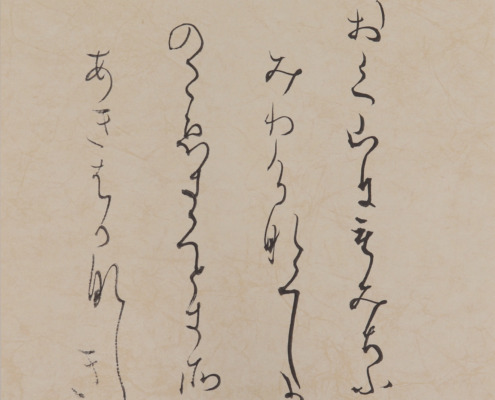 おく山にもみちふ
みわけ那くしか
のこゑきくとき所
あきはか那しき